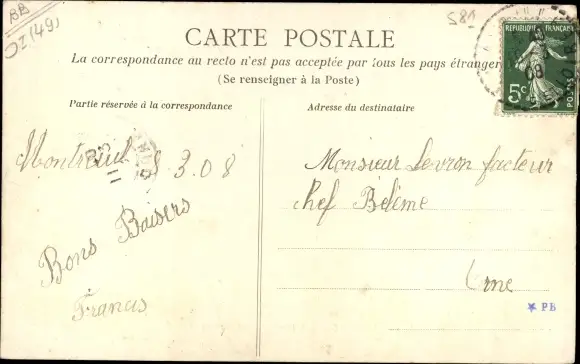 BB
OI(49)
581
CARTE POSTALE
La correspondance au recto n'est pas acceptée par tous les pays étrangers
(Se renseigner à la Poste)
RÉPUBLIQUE FRANÇAISE
5c
POSTES
08
Partie réservée à la correspondance
Adresse du destinataire
Montreuil 8.3.08
Bons Baisers
Francis
Monsieur Levron facteur
Chef Belême
Orne
* PB